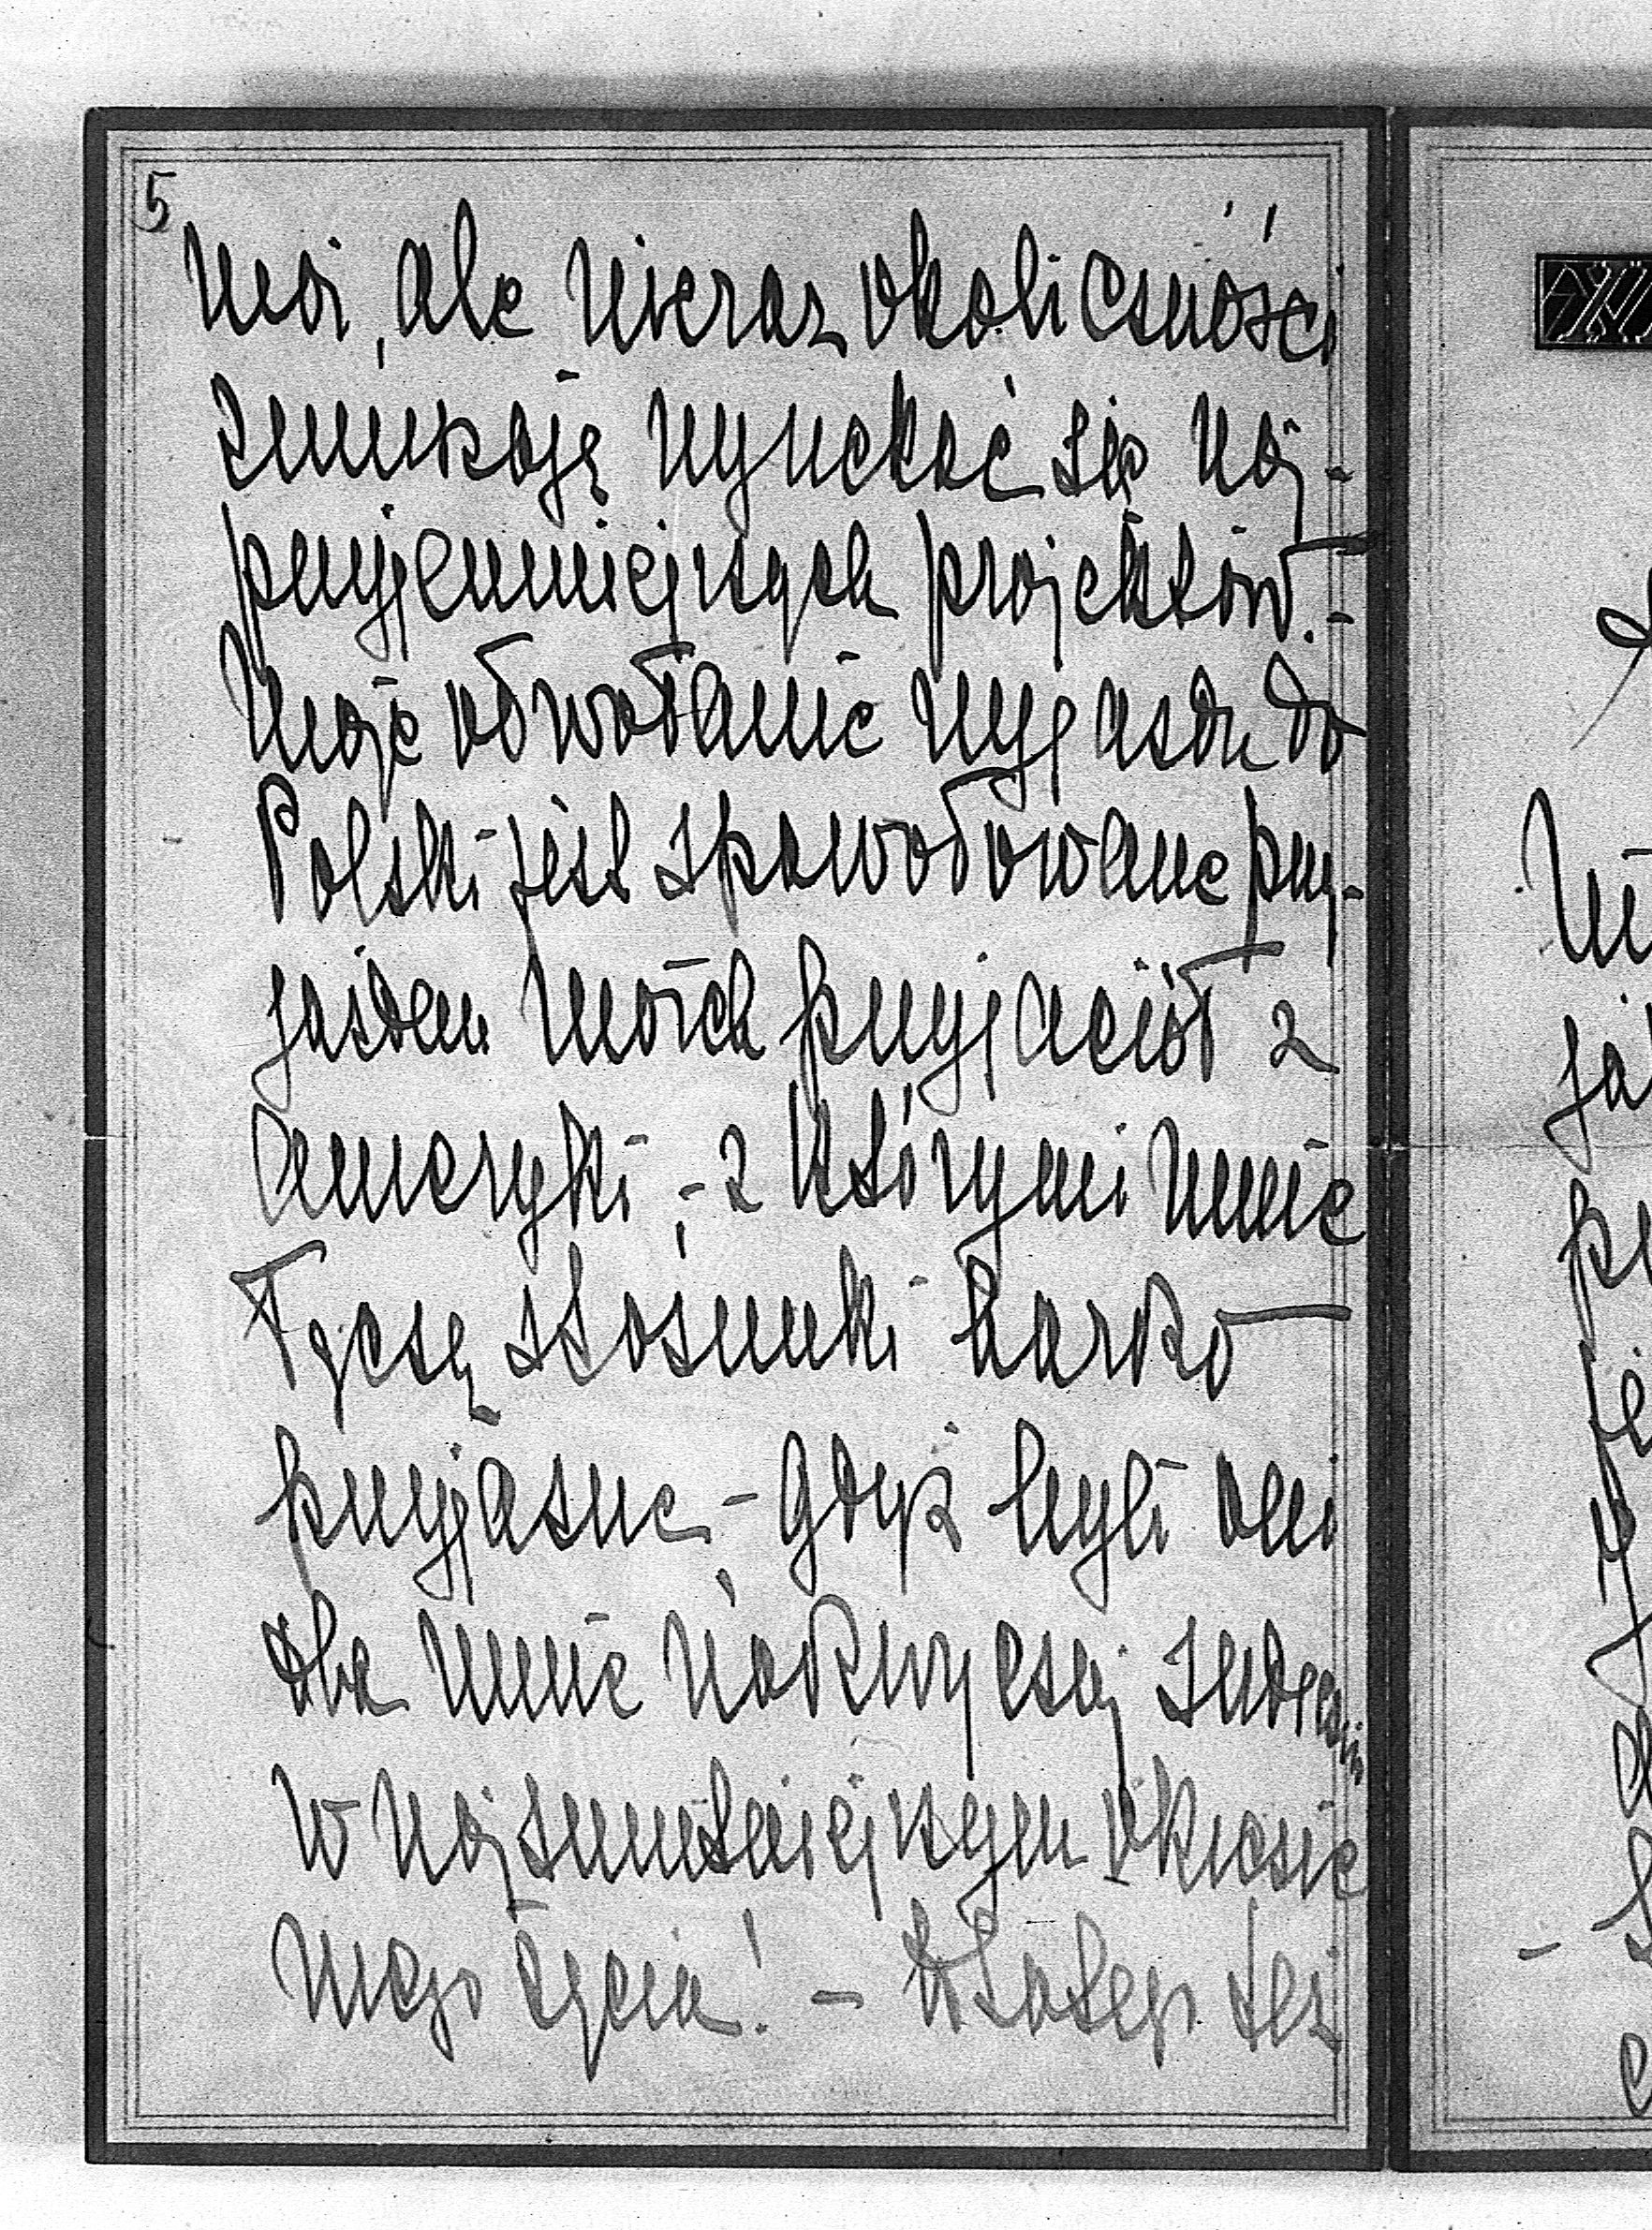 5
moi, ale nieraz okoliczności
zmuszają wyrzekać się naj-
przyjemniejszych projektów.-
Moje odwołanie wyjazdu do
Polski jest spowodowane przy-
jazdem moich przyjaciół z
Ameryki,- z którymi mnie
łączą stosunki bardzo
przyjazne,- gdyż byli oni
dla mnie nadzwyczaj serdeczni
w najsmutniejszym okresie
mego życia! -